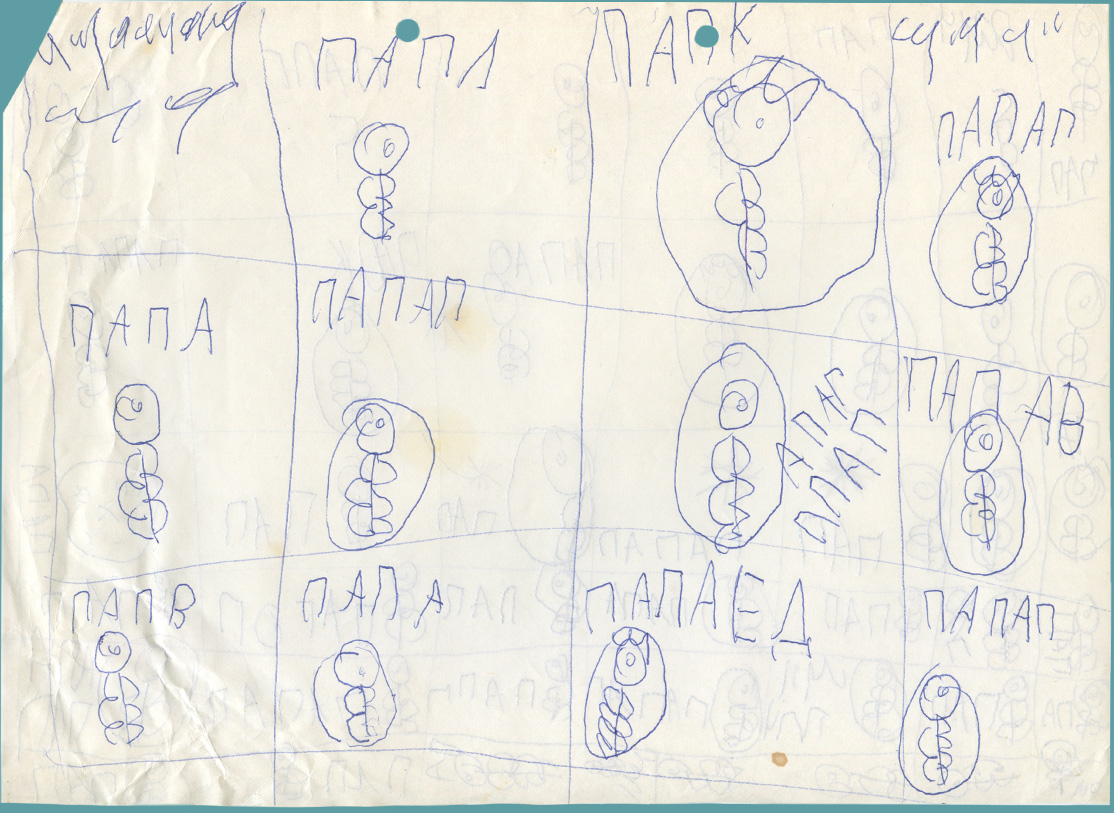 ПАПЛ
ПАПК
ПАПАП
ПАПА
ПАПАП
АПАП
ППАП
ПАПАВ
ПАПВ
ПАПА
ПАПАЕД
ПАПАП